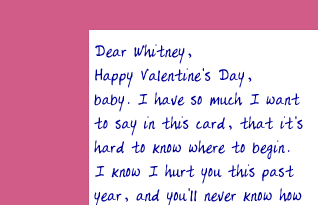 Dear Whitney,
Happy Valentine's Day,
baby. I have so much I want
to say in this card, that it's
hard to know where to begin.
I know I hurt you this past
year, and you'll never know how